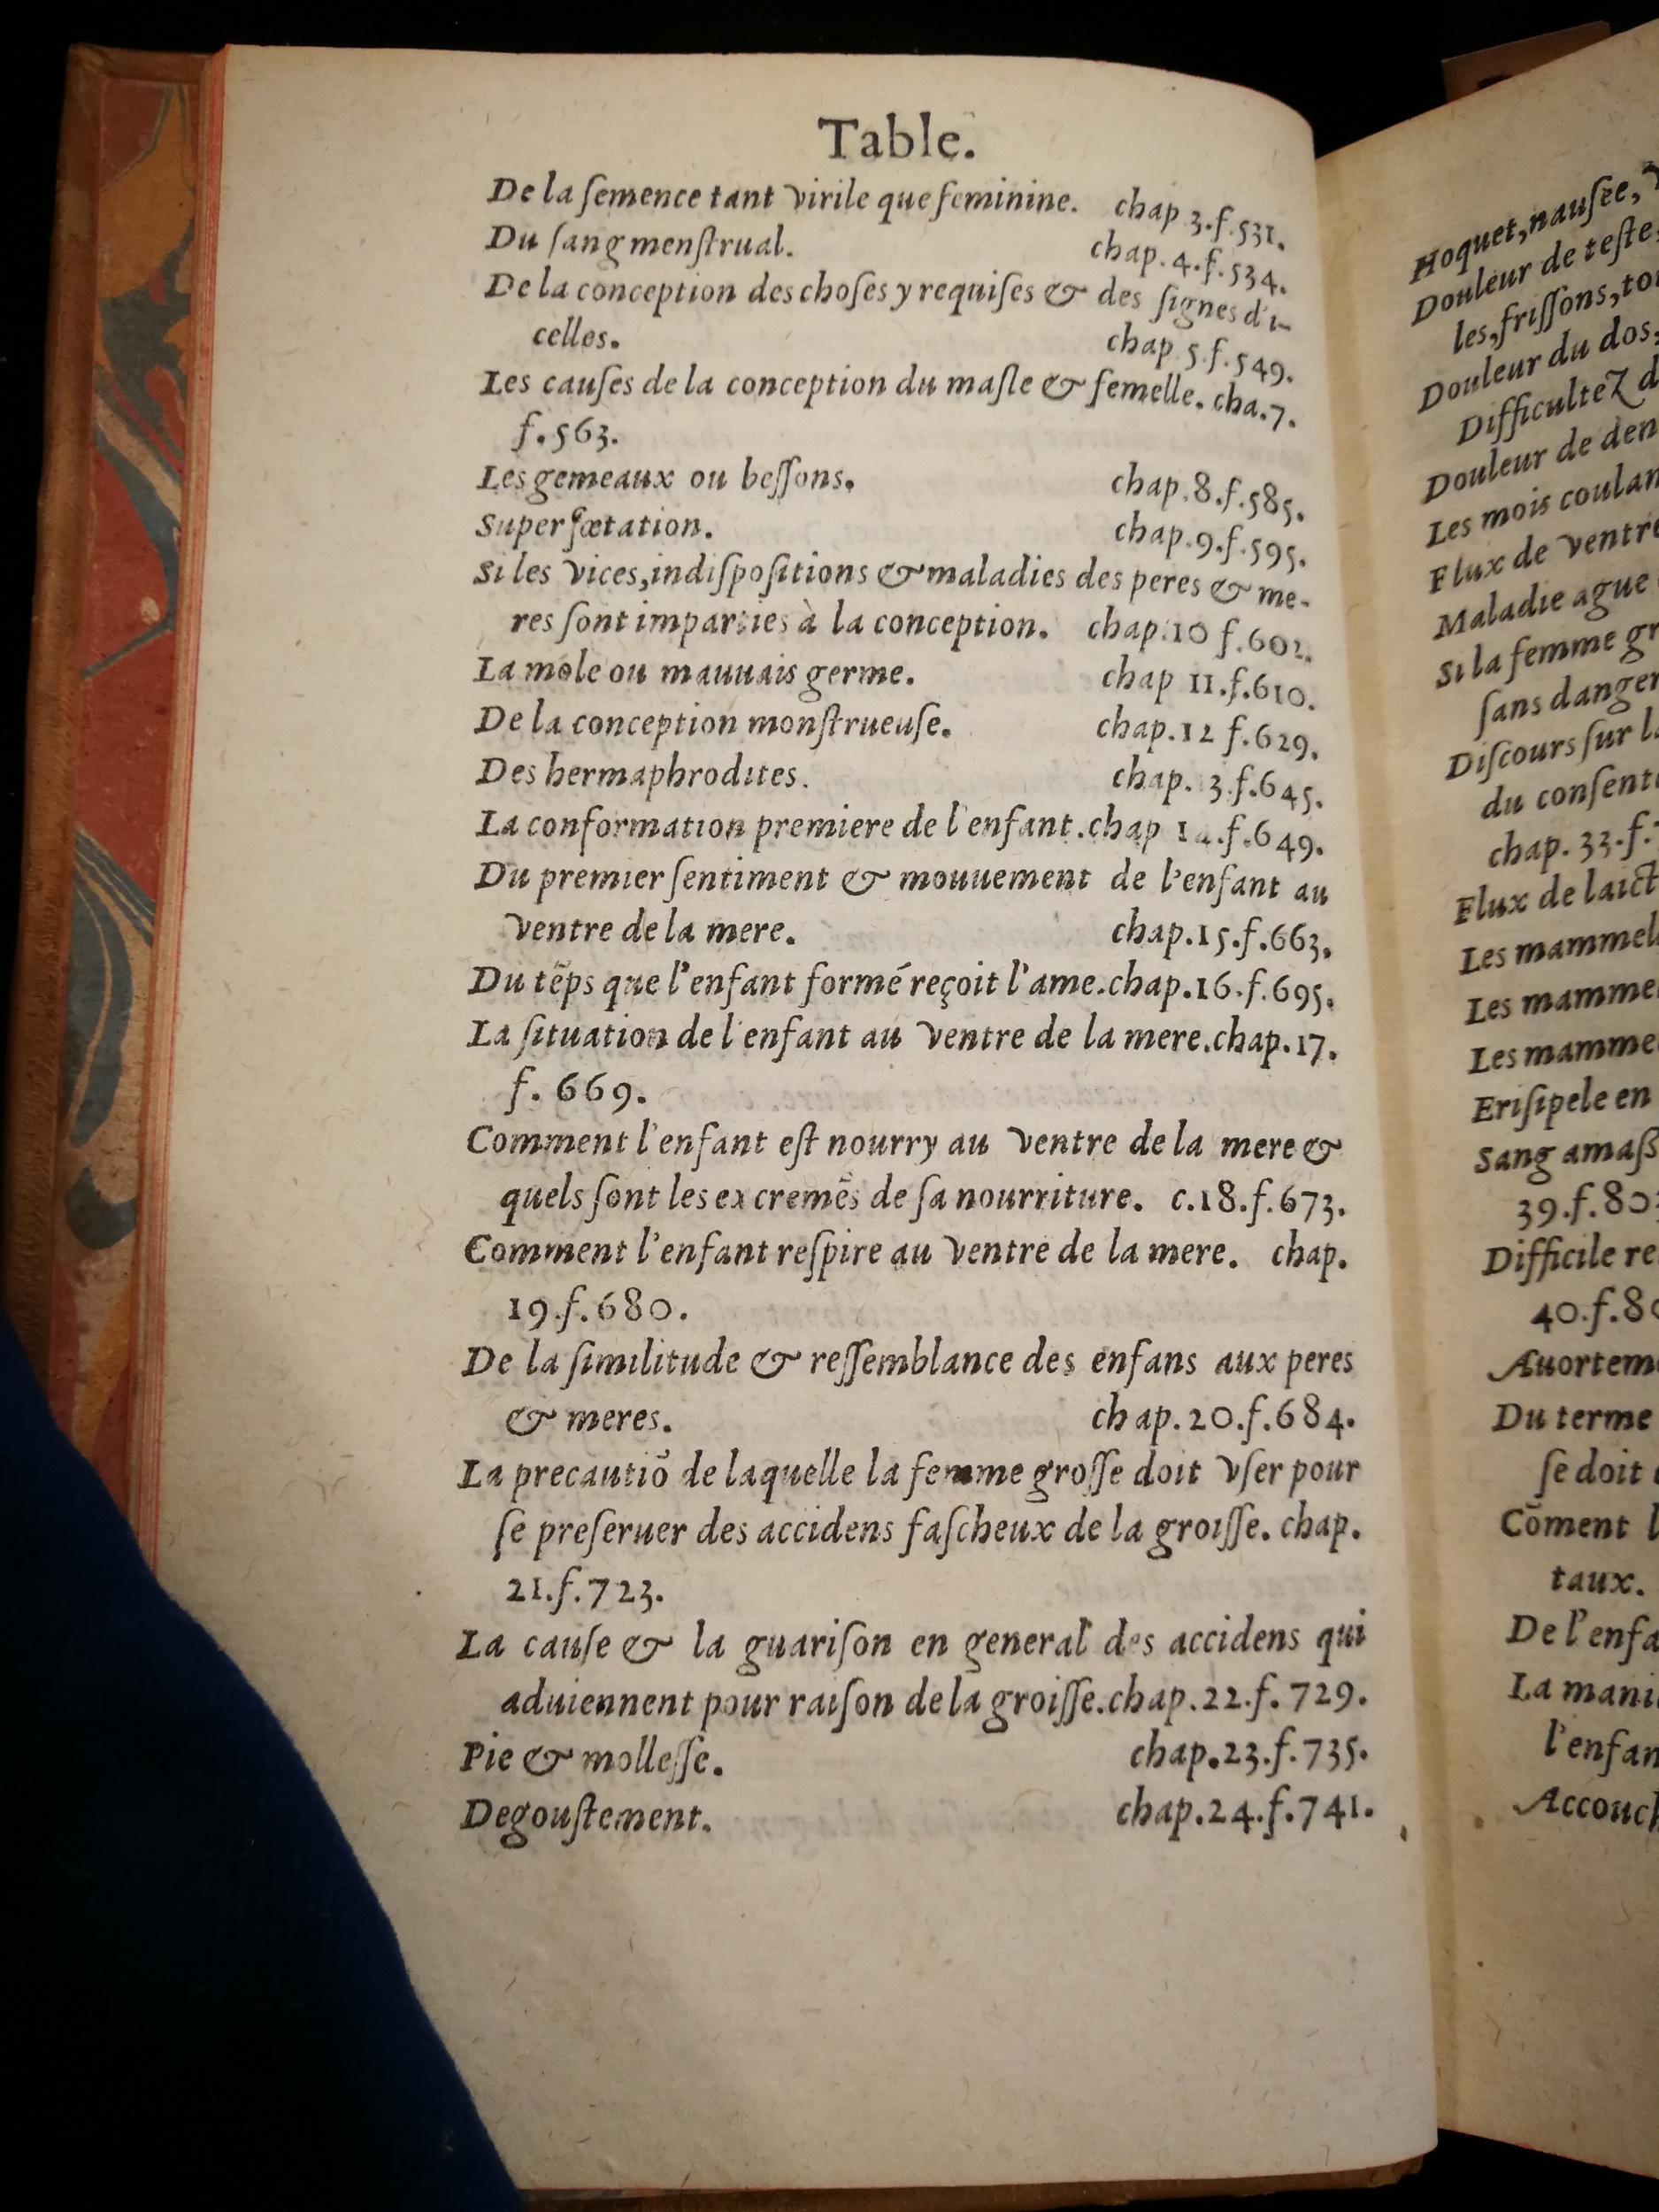 Table.
De la ſemence tant virile que feminine. chap 3.f.531.
Du ſang menſtrual. chap.4.f.534.
De la conception des choſes y requiſes & des ſignes d'i-
celles. chap 5.f.549.
Les cauſes de la conception du maſle & femelle. cha.7.
f.563.
Les gemeaux ou beſſons. chap.8.f.585.
Superfœtation. chap.9.f.595.
Si les vices,indiſpoſitions & maladies des peres & me-
res ſont imparties à la conception. chap.10 f.602.
La mole ou mauuais germe. chap 11.f.610.
De la conception monſtrueuſe. chap.12 f.629.
Des hermaphrodites. chap. 3.f.645.
La conformation premiere de l'enfant.chap 14.f.649.
Du premier ſentiment & mouuement de l'enfant au
ventre de la mere. chap.15.f.663.
Du tēps que l'enfant formé reçoit l'ame.chap.16.f.695.
La ſituation de l'enfant au ventre de la mere.chap.17.
f. 669.
Comment l'enfant eſt nourry au ventre de la mere &
quels ſont les excremēs de ſa nourriture. c.18.f.673.
Comment l'enfant reſpire au ventre de la mere. chap.
19.f.680.
De la ſimilitude & reſſemblance des enfans aux peres
& meres. chap.20.f.684.
La precautiō de laquelle la femme groſſe doit vſer pour
ſe preſeruer des accidens faſcheux de la groiſſe. chap.
21.f.723.
La cauſe & la guariſon en general des accidens qui
aduiennent pour raiſon de la groiſſe.chap.22.f.729.
Pie & molleſſe. chap.23.f.735.
Degouſtement. chap.24.f.741.
Hoquet,nauſée,
Douleur de teſte
les,friſſons,
Douleur du dos,
Difficultez d
Douleur de den
Les mois coulan
Flux de ventre
Maladie ague
Si la femme gr
ſans danger
Diſcours ſur l
du conſent
chap. 33.f.
Flux de laict
Les mammel
Les mamme
Les mamme
Eriſipele en
Sang amaſ
39.f.803
Difficile re
40.f.80
Auortem
Du terme
ſe doit
Cōment l
taux.
De l'enfa
La mani
l'enfan
Accouch